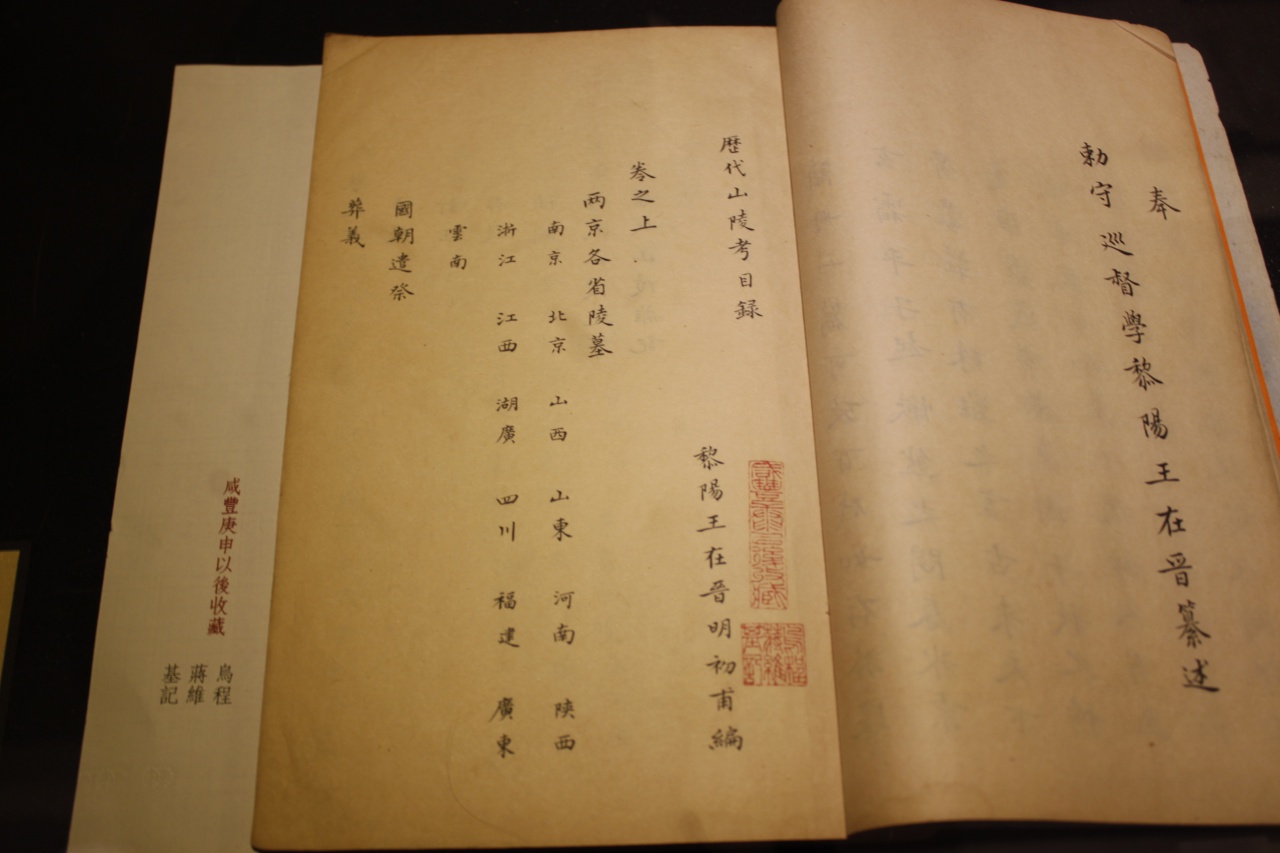 奉
勅守巡督學黎陽王在晋纂述
歴代山陵考目録
黎陽王在晉明初甫編
卷之上
兩京各省陵墓
南京 北京 山西 山東 河南 陝西
浙江 江西 湖廣 四川 福建 廣東
雲南
國朝遣祭
葬義
咸豐庚申以後收藏
烏程
蔣維
基記
咸豐庚申以後收藏
烏程
蔣維
基記